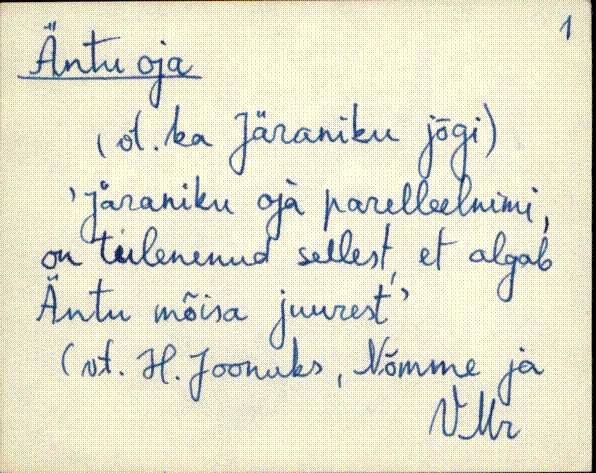 1
Äntu oja
(vt. ka Järaniku jõgi)
'Järaniku oja parelleelnimi,
on tulenenud sellest, et algab
Äntu mõisa juurest'
(vt. H. Joonuks, Nõmme ja
VMr